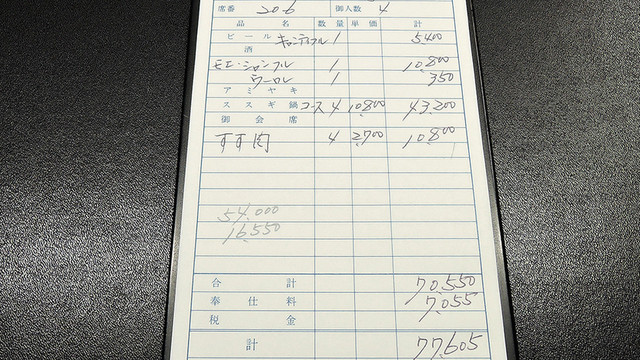 席番 20-6 御人数 4
品名 数量 単価 計
ビール キャンティフル 1 5,400
酒
モエ・シャンフル 1 10,800
ウーロン 1 350
アミヤキ
ススギ鍋 コース 4 10,800 43,200
御会席
すす肉 4 2,700 10,800
54,000
16,550
合計 70,550
奉仕料 7,055
税金
計 77,605